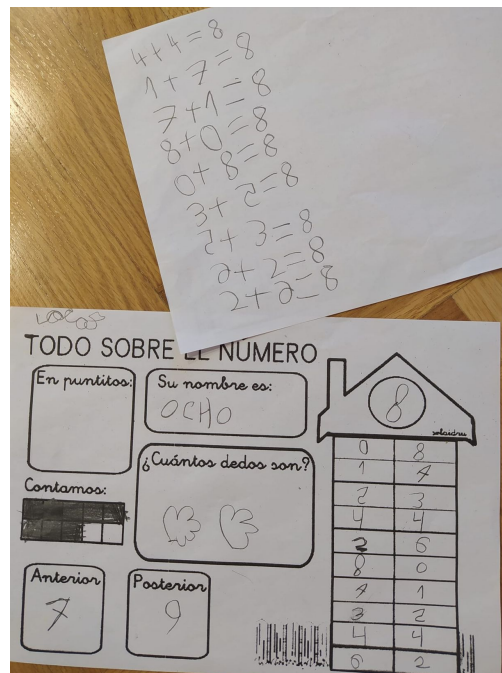 4+4=8
1+7=8
7+1=8
8+0=8
0+8=8
3+5=8
5+3=8
6+2=8
2+6=8
TODO SOBRE EL NÚMERO
En puntitos:
Su nombre es:
OCHO
8
¿Cuántos dedos son?
Contamos:
Anterior
7
Posterior
9
0 8
1 7
5 3
4 4
2 6
8 0
7 1
3 5
4 4
6 2